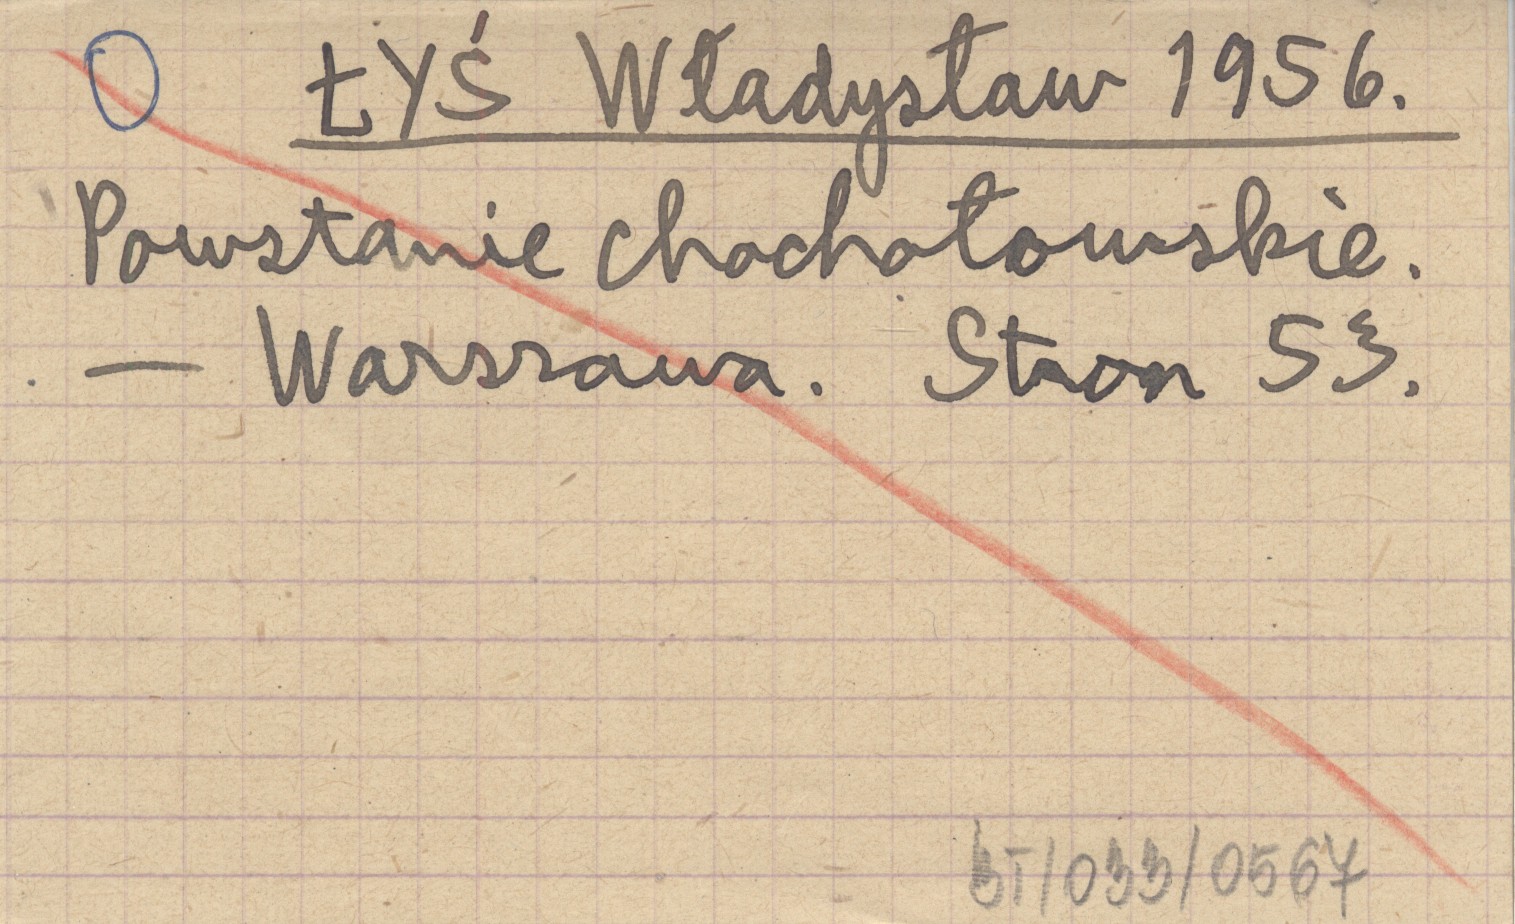 ŁYŚ Władysław 1956.
Powstanie chochołowskie.
— Warszawa. Stron 53.
BT/033/0567